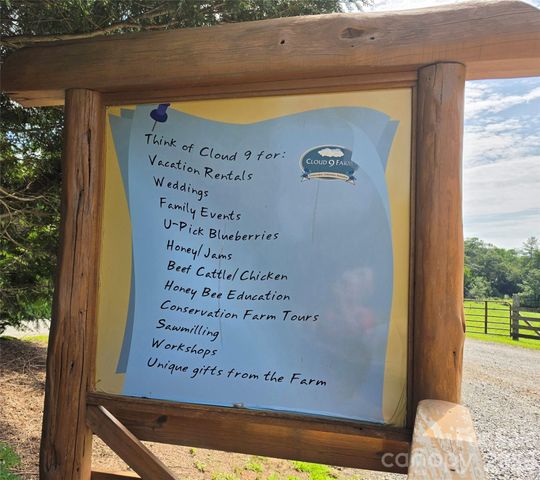 Think of Cloud 9 for:
CLOUD 9 FARM
Vacation Rentals
Weddings
Family Events
U-Pick Blueberries
Honey/Jams
Beef Cattle/Chicken
Honey Bee Education
Conservation Farm Tours
Sawmilling
Workshops
Unique gifts from the Farm